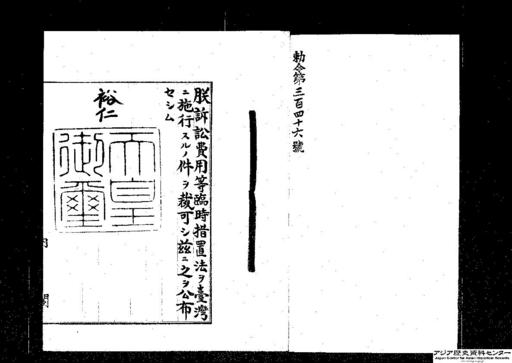 勅令第三百四十六號
朕訴訟費用等臨時措置法ヲ臺灣
ニ施行スルノ件ヲ裁可シ茲ニ之ヲ公布
セシム
裕仁
天皇
御璽
内閣
アジア歴史資料センター
Japan Center for Asian Historical Records